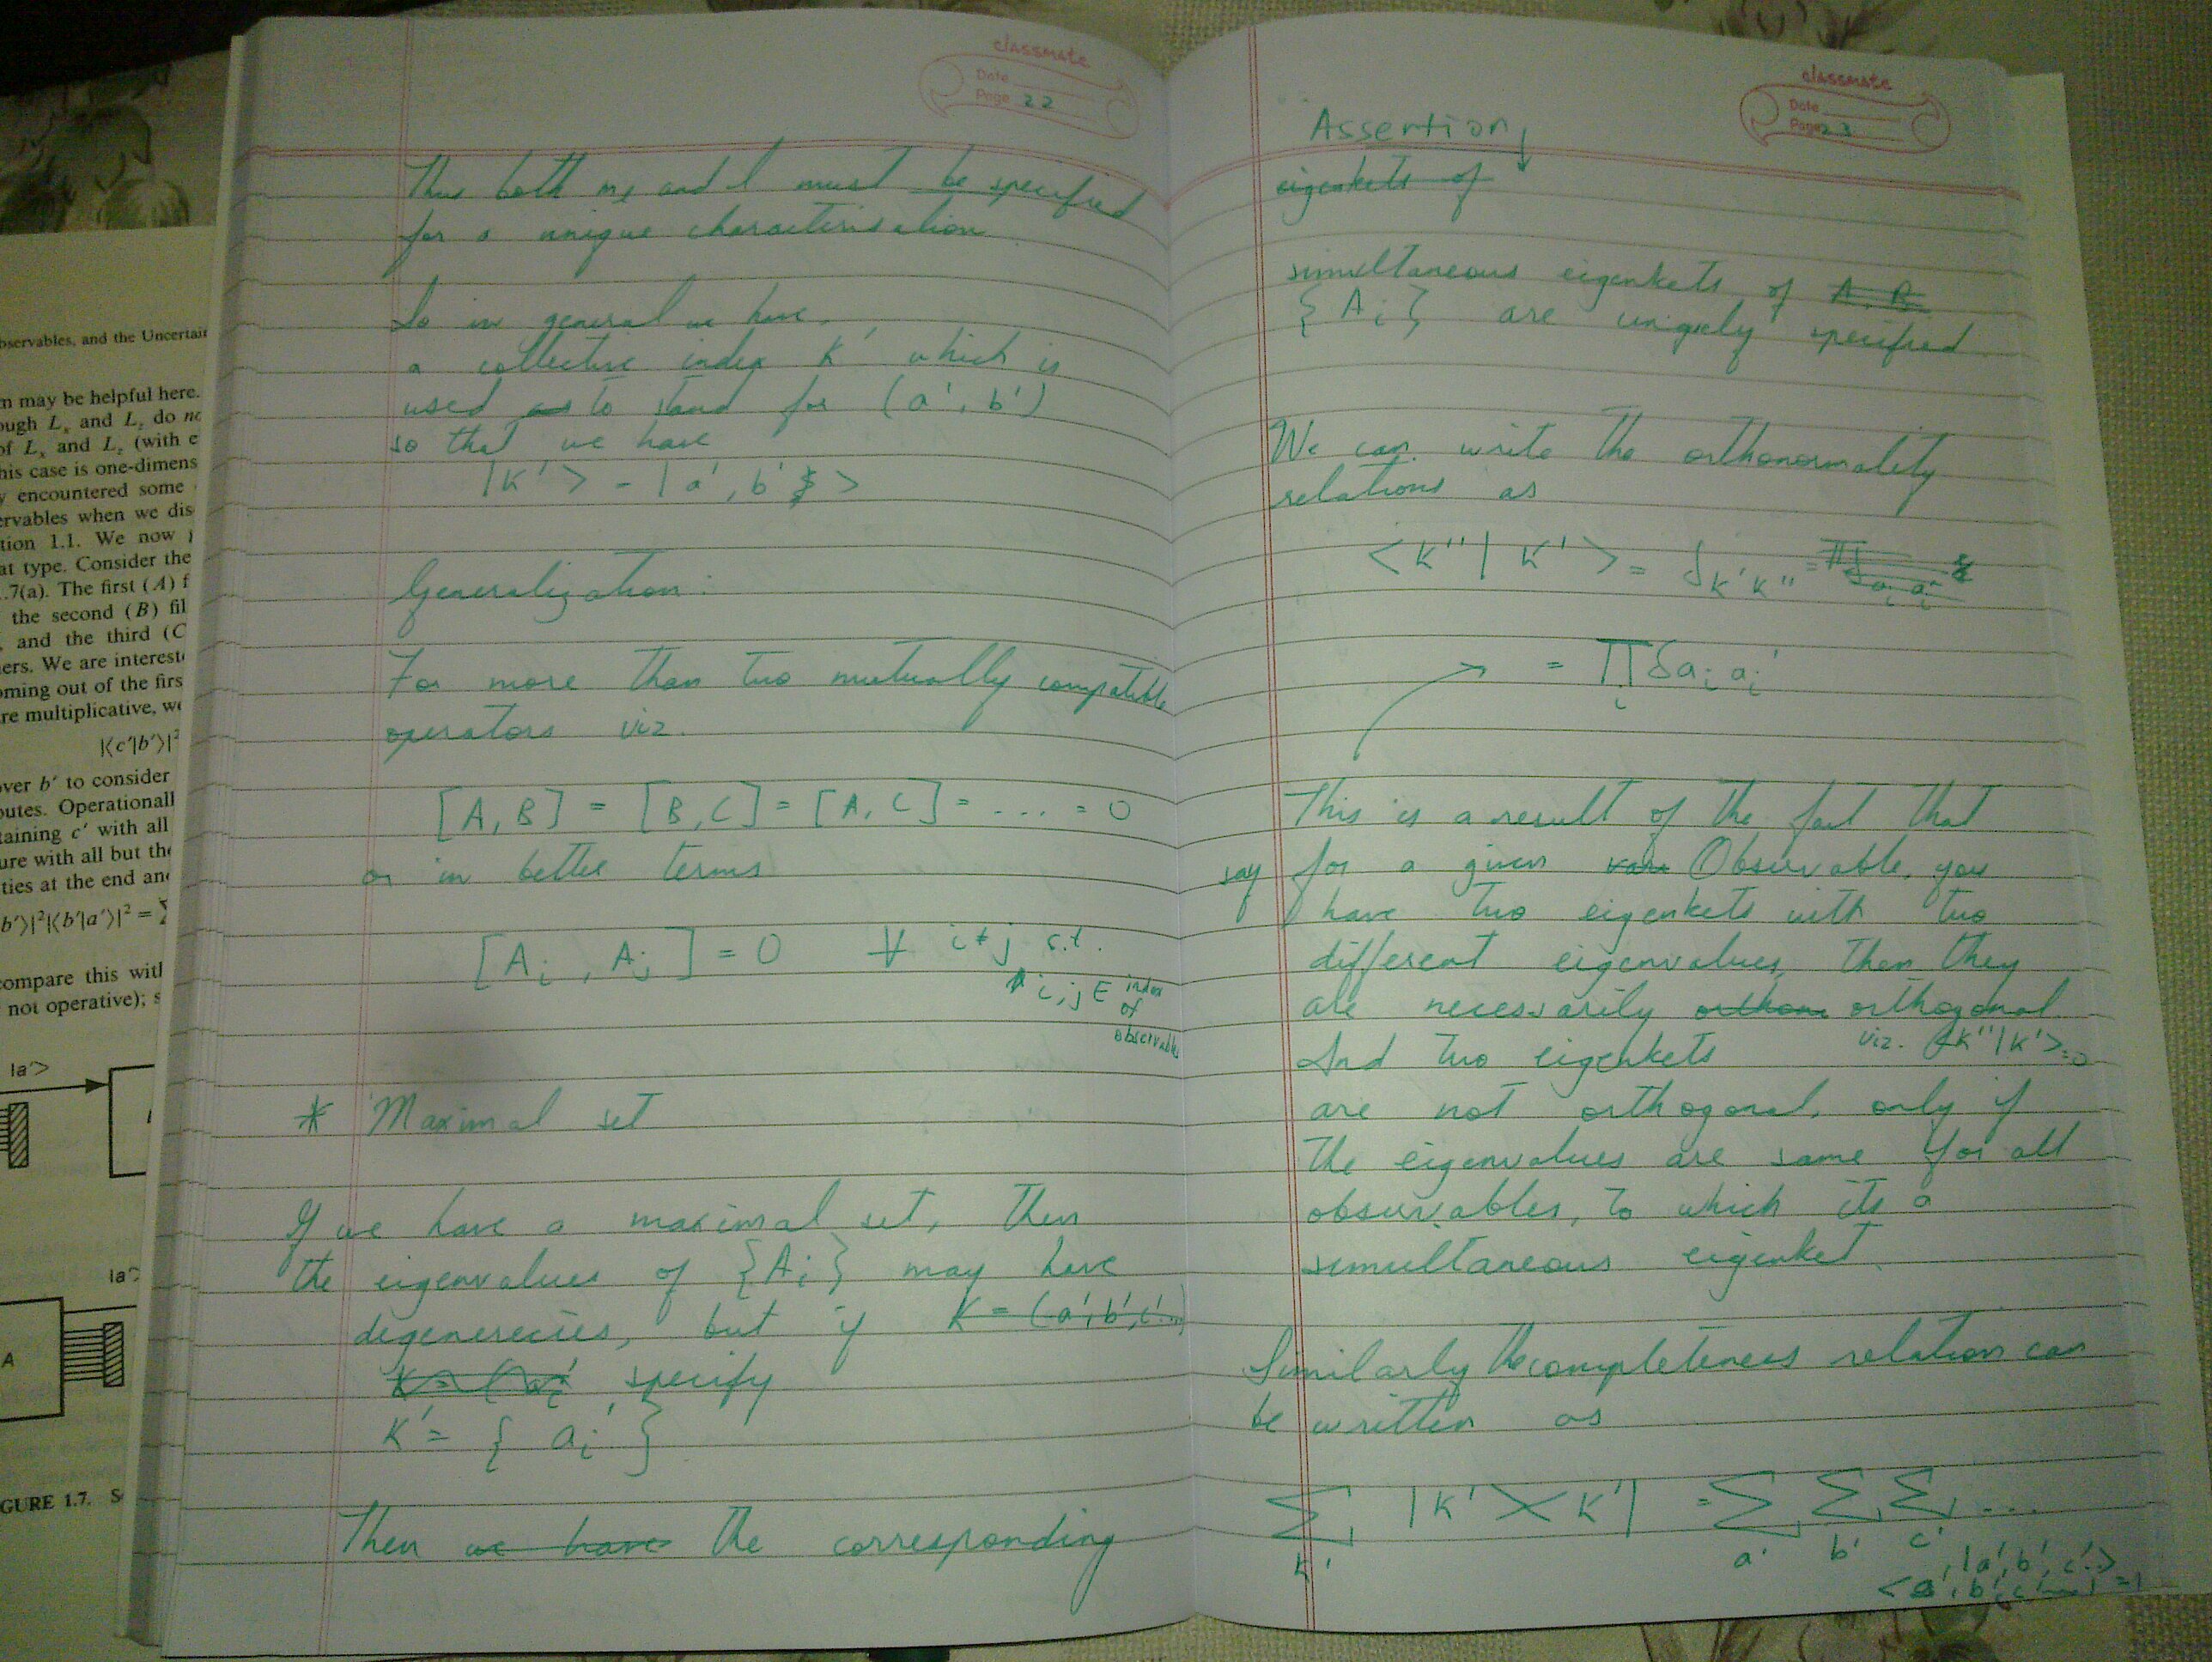 bservables, and the Uncertain
n may be helpful here.
ough Lx and Lz do no
of Lx and Lz (with e
his case is one-dimens
y encountered some
ervables when we dis
tion 1.1. We now
at type. Consider the
.7(a). The first (A) f
the second (B) fil
, and the third (C
ers. We are intereste
oming out of the firs
re multiplicative, we
|⟨c'|b'⟩|²
over b' to consider
outes. Operationall
taining c' with all
ure with all but the
ties at the end and
b'⟩|²|⟨b'|a'⟩|² = Σ
compare this with
not operative); s
|a'>
|a'>
A
GURE 1.7. S
classmate
Date
Page 22
Thus both m, and l must be specified
for a unique characterisation
So in general we have,
a collective index K' which is
used as to stand for (a', b')
so that we have
|K'> = |a', b'>
Generalization:
For more than two mutually compatible
operators viz.
[A, B] = [B, C] = [A, C] = .... = 0
or in better terms
[Ai, Aj] = 0 ∀ i≠j s.t.
i,j ∈ index
of
observables
* Maximal set
If we have a maximal set, then
the eigenvalues of {Ai} may have
degeneracies, but if K = (a', b', c'...)
K = (ai' specify
K' = { ai' }
Then we have the corresponding
classmate
Date
Page 23
Assertion ↓
eigenkets of
simultaneous eigenkets of A, B
{Ai} are uniqely specified
We can write the orthonormality
relations as
<K''|K'> = δK'K'' =
= ∏i δai ai'
This is a result of the fact that
say for a given vari Observable, you
have two eigenkets with two
different eigenvalues, then they
are necessarily orthono orthogonal
viz. <K''|K'>=0
And two eigenkets
are not orthogonal, only if
the eigenvalues are same for all
observables, to which its a
simultaneous eigenket.
Similarly the completeness relation can
be written as
Σ |K'><K'| = Σ Σ Σ ...
K' a' b' c'
|a', b', c'..>
<a', b', c'...| = 1